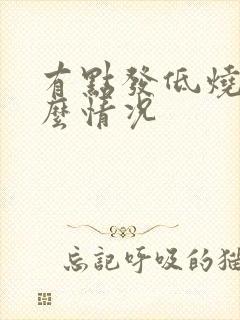 有點發低燒
麼情況
忘記呼吸的猫